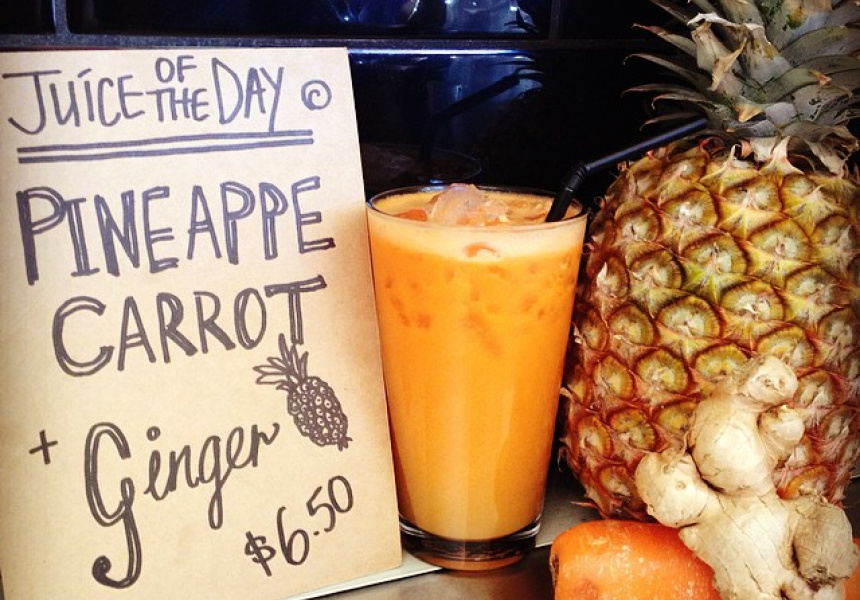 JUíCE OF THE DAY ©
PINEAPPE
CARROT
+ Ginger
$6.50